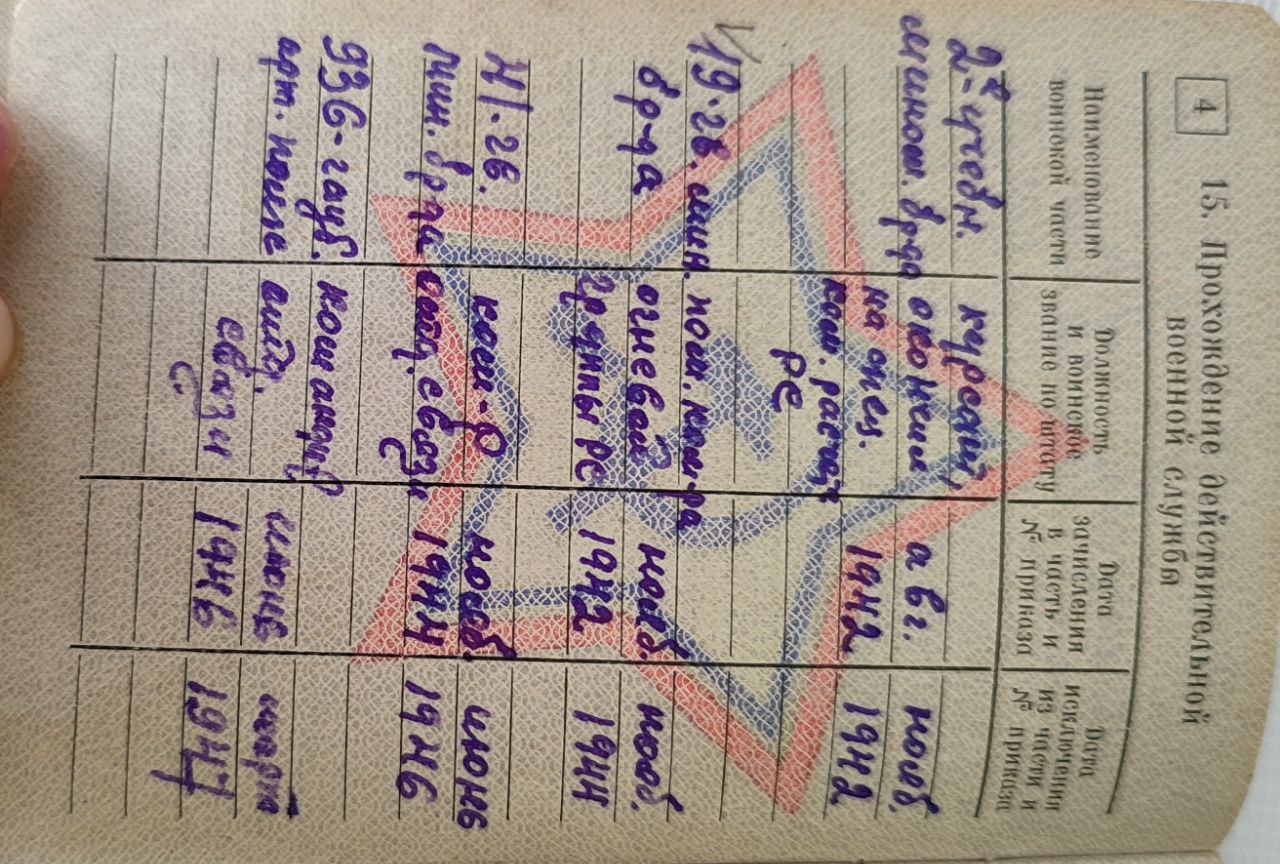 4
15. Прохождение действительной
военной службы
Наименование
воинской части
Должность
и воинское
звание по штату
Дата
зачисления
в часть и
№ приказа
Дата
исключения
из части и
№ приказа
2-учебн. курсант,
мином. бр-да окончил авг. нояб.
на спец. 1942 1942
ком. расчёта
РС
19. гв. мин. пом. ком-ра
бр-да огневой нояб. нояб.
группы РС 1942 1944
41. гв. ком-р нояб. июнь
мин. бр-да отд. связи 1944 1946
936-гауб. командир
арт. полк отд. июнь марта
связи 1946 1947